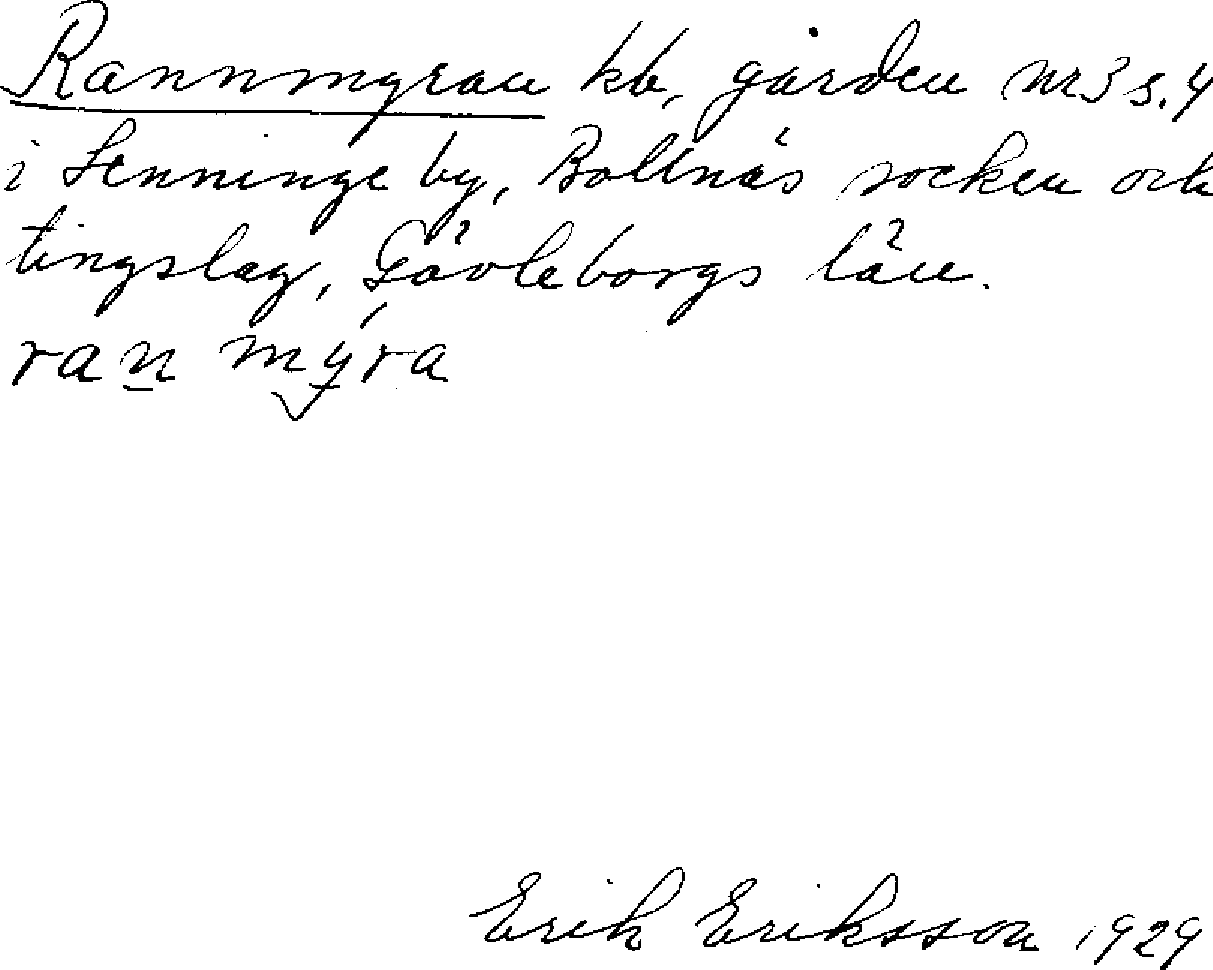 Rannmyran kb, gården nr 3 s. 4
i Lenninge by, Bollnäs socken och
tingslag, Gävleborgs län.
ran mýra
Erik Eriksson 1929